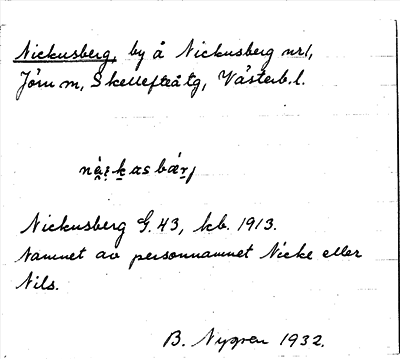 Nickusberg, by å Nickusberg nr 1,
Jörn sn, Skellefteå tg, Västerb. l.
Nickusberg G. 43, kb. 1913.
Namnet av personnamnet Nicke eller
Nils.
B. Nygren 1932.